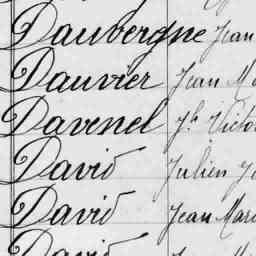 Dauvergne Jean
Dauvier Jean M
Davenel Victo
David Julien J
David Jean Mari
David